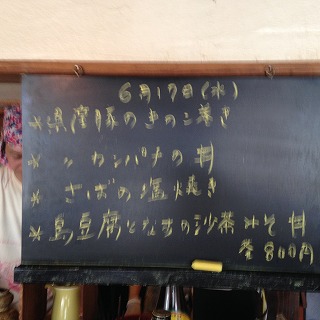 6月17日(水)
*県産豚のきのこ巻き
* 〃 カンパチの丼
*さばの塩焼き
*島豆腐となすの沙茶みそ丼
各800円